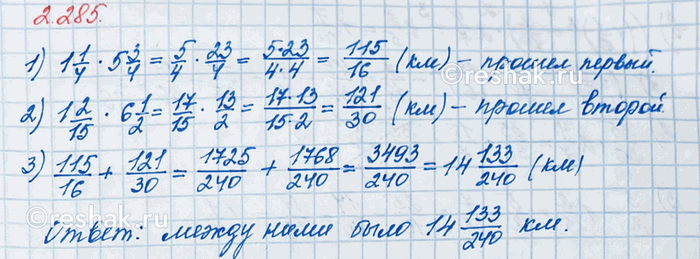 2.285.
1) 1 1/4 · 5 3/4 = 5/4 · 23/4 = 5·23/4·4 = 115/16 (км) – прошел первый.
2) 1 2/15 · 6 1/2 = 17/15 · 13/2 = 17·13/15·2 = 121/30 (км) – прошел второй.
3) 115/16 + 121/30 = 1725/240 + 1768/240 = 3493/240 = 14 133/240 (км)
Ответ: между ними было 14 133/240 км.